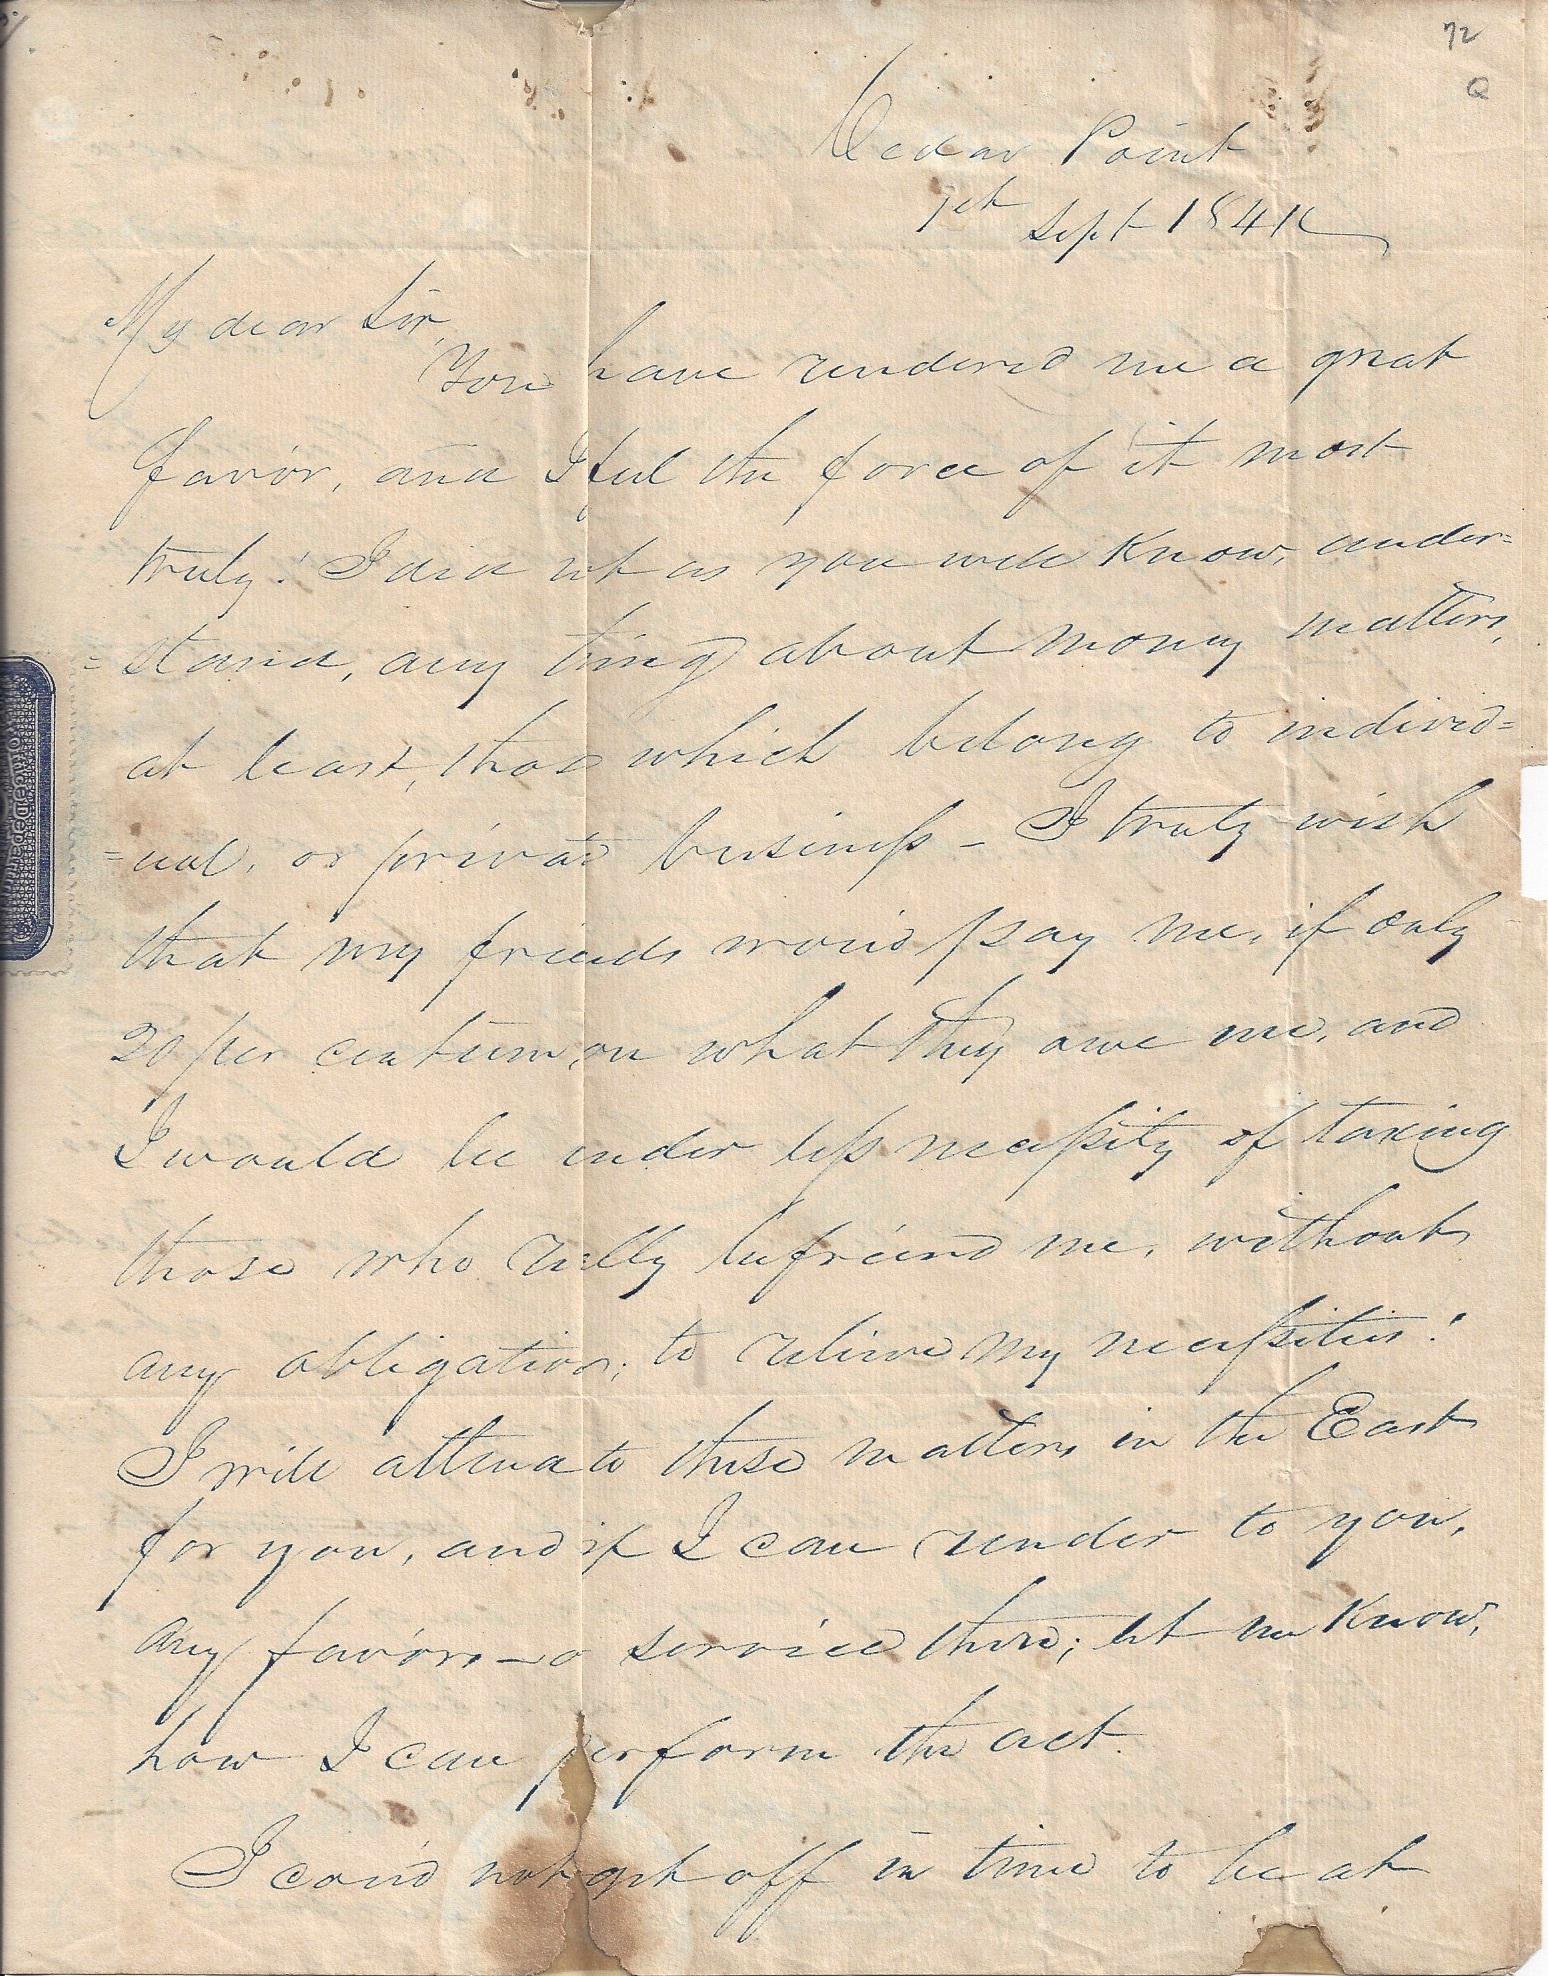 72
Q
Cedar Point
7th Sept 1841
My dear Sir,
You have rendered me a great
favor, and I feel the force of it most
truly! I did not as you well Know, under=
=stand, any thing about money matters,
at least, those which belong to individ=
=ual, or private business – I truly wish
that my friends wou'd pay me, if only
20 per centum, on what they owe me, and
I would be under less necessity of taxing
those who really befriend me, without
any obligation, to relieve my necessities!
I will attend to these matters in the East
for you, and if I can render to you,
any favors – or service there; let me Know,
how I can perform the act.
I cou'd not get off in time to be at